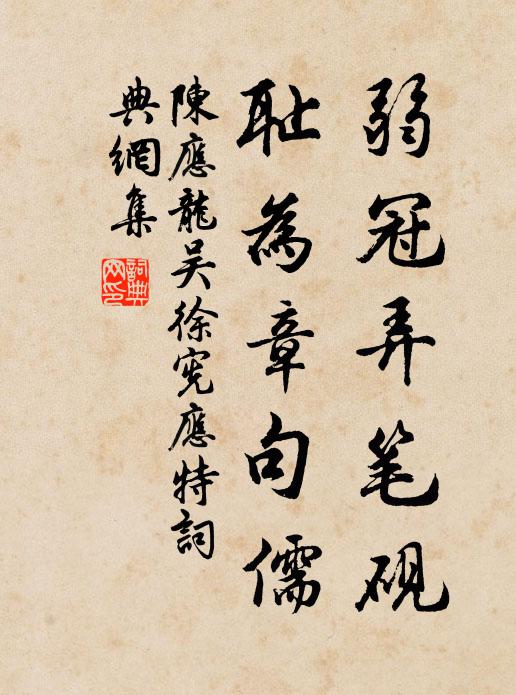 弱冠弄笔砚
耻為章句儒
陳應龍吴徐寃應特詞
典網集
詞典
网印